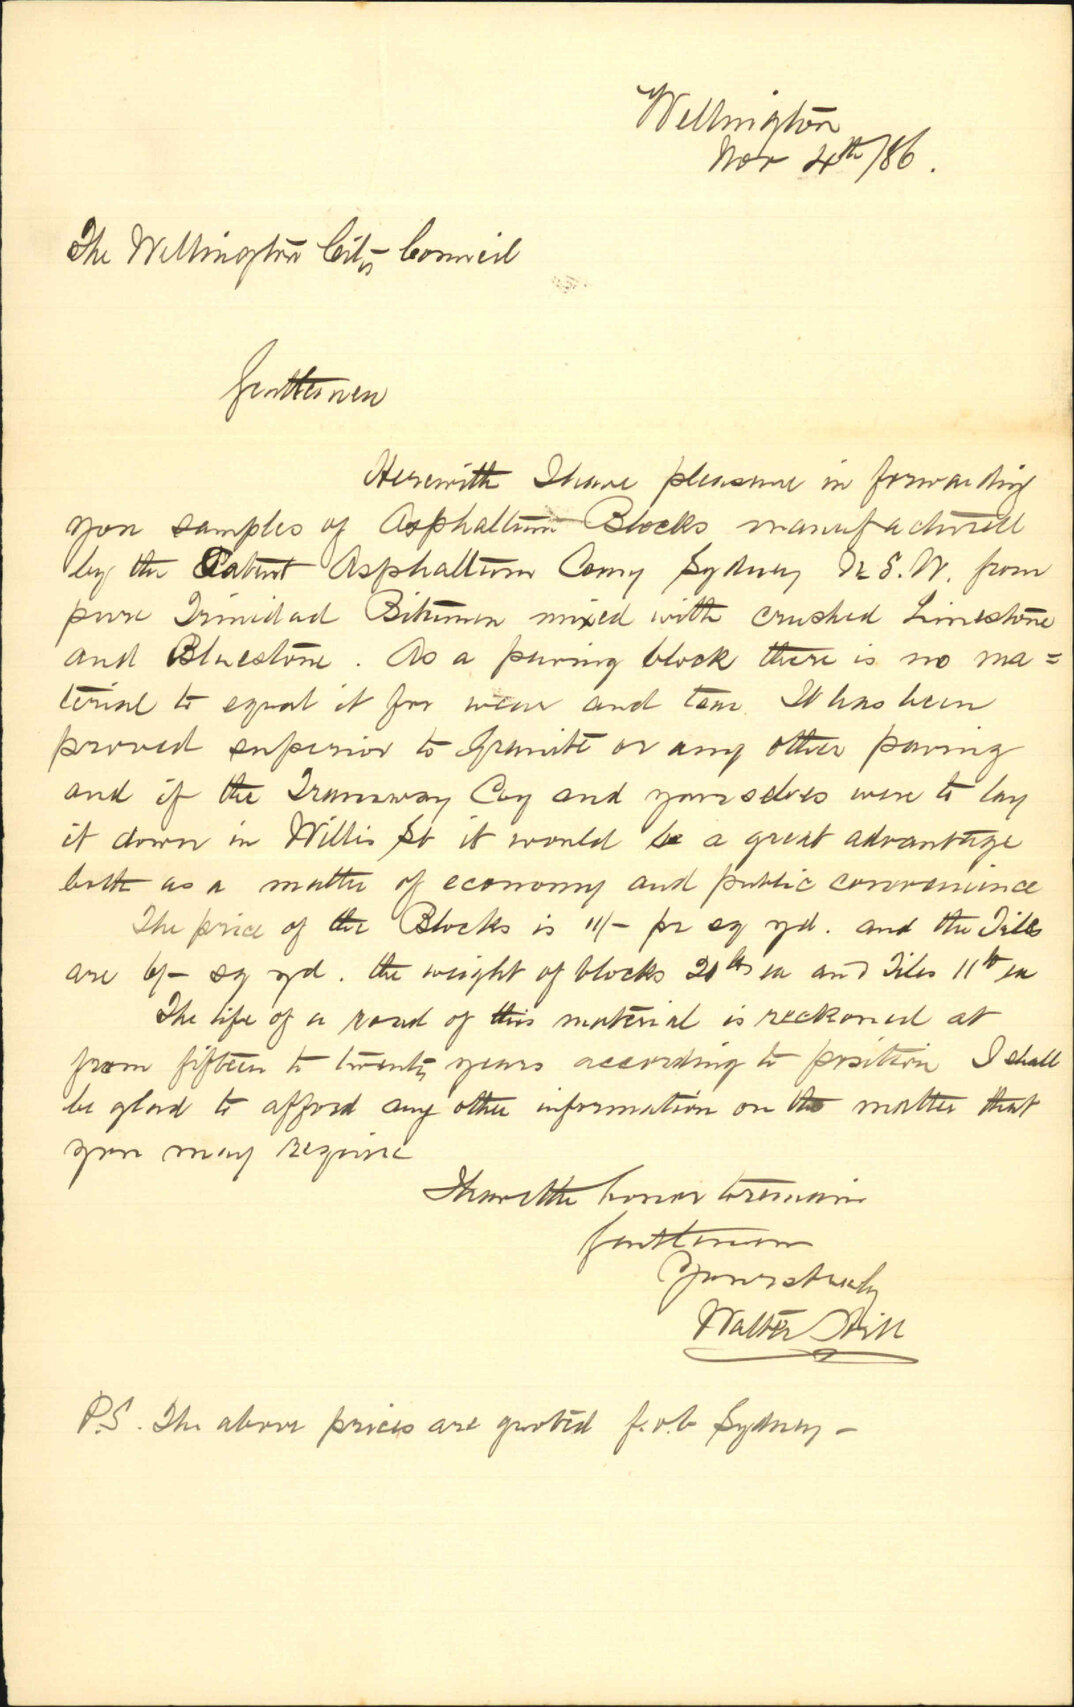 Wellington
Nov 4th/86.
The Wellington City Council
Gentlemen
Herewith I have pleasure in forwarding
you samples of Asphaltum Blocks manufactured
by the Patent Asphaltum Comy Sydney N.S.W. from
pure Trinidad Bitumen mixed with crushed Limestone
and Bluestone. As a paving block there is no ma=
terial to equal it for wear and tear. It has been
proved superior to Granite or any other paving
and if the Tramway Coy and yourselves were to lay
it down in Willis St it would be a great advantage
both as a matter of economy and public convenience
The price of the Blocks is 11/- pr sq yd. and the Tiles
are 6/- sq yd. the weight of blocks 21 lbs ea and Tiles 11 lb ea
The life of a road of this material is reckoned at
from fifteen to twenty years according to position I shall
be glad to afford any other information on the matter that
you may require
I have the honor to remain
Gentlemen
Yours truly
Walter Hill
P.S. The above prices are quoted f.o.b Sydney -